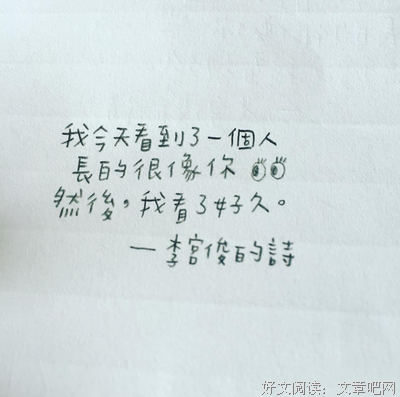 我今天看到了一個人
長的很像你
然後，我看了好久。
—李宮俊的詩
好文阅读：文章吧网